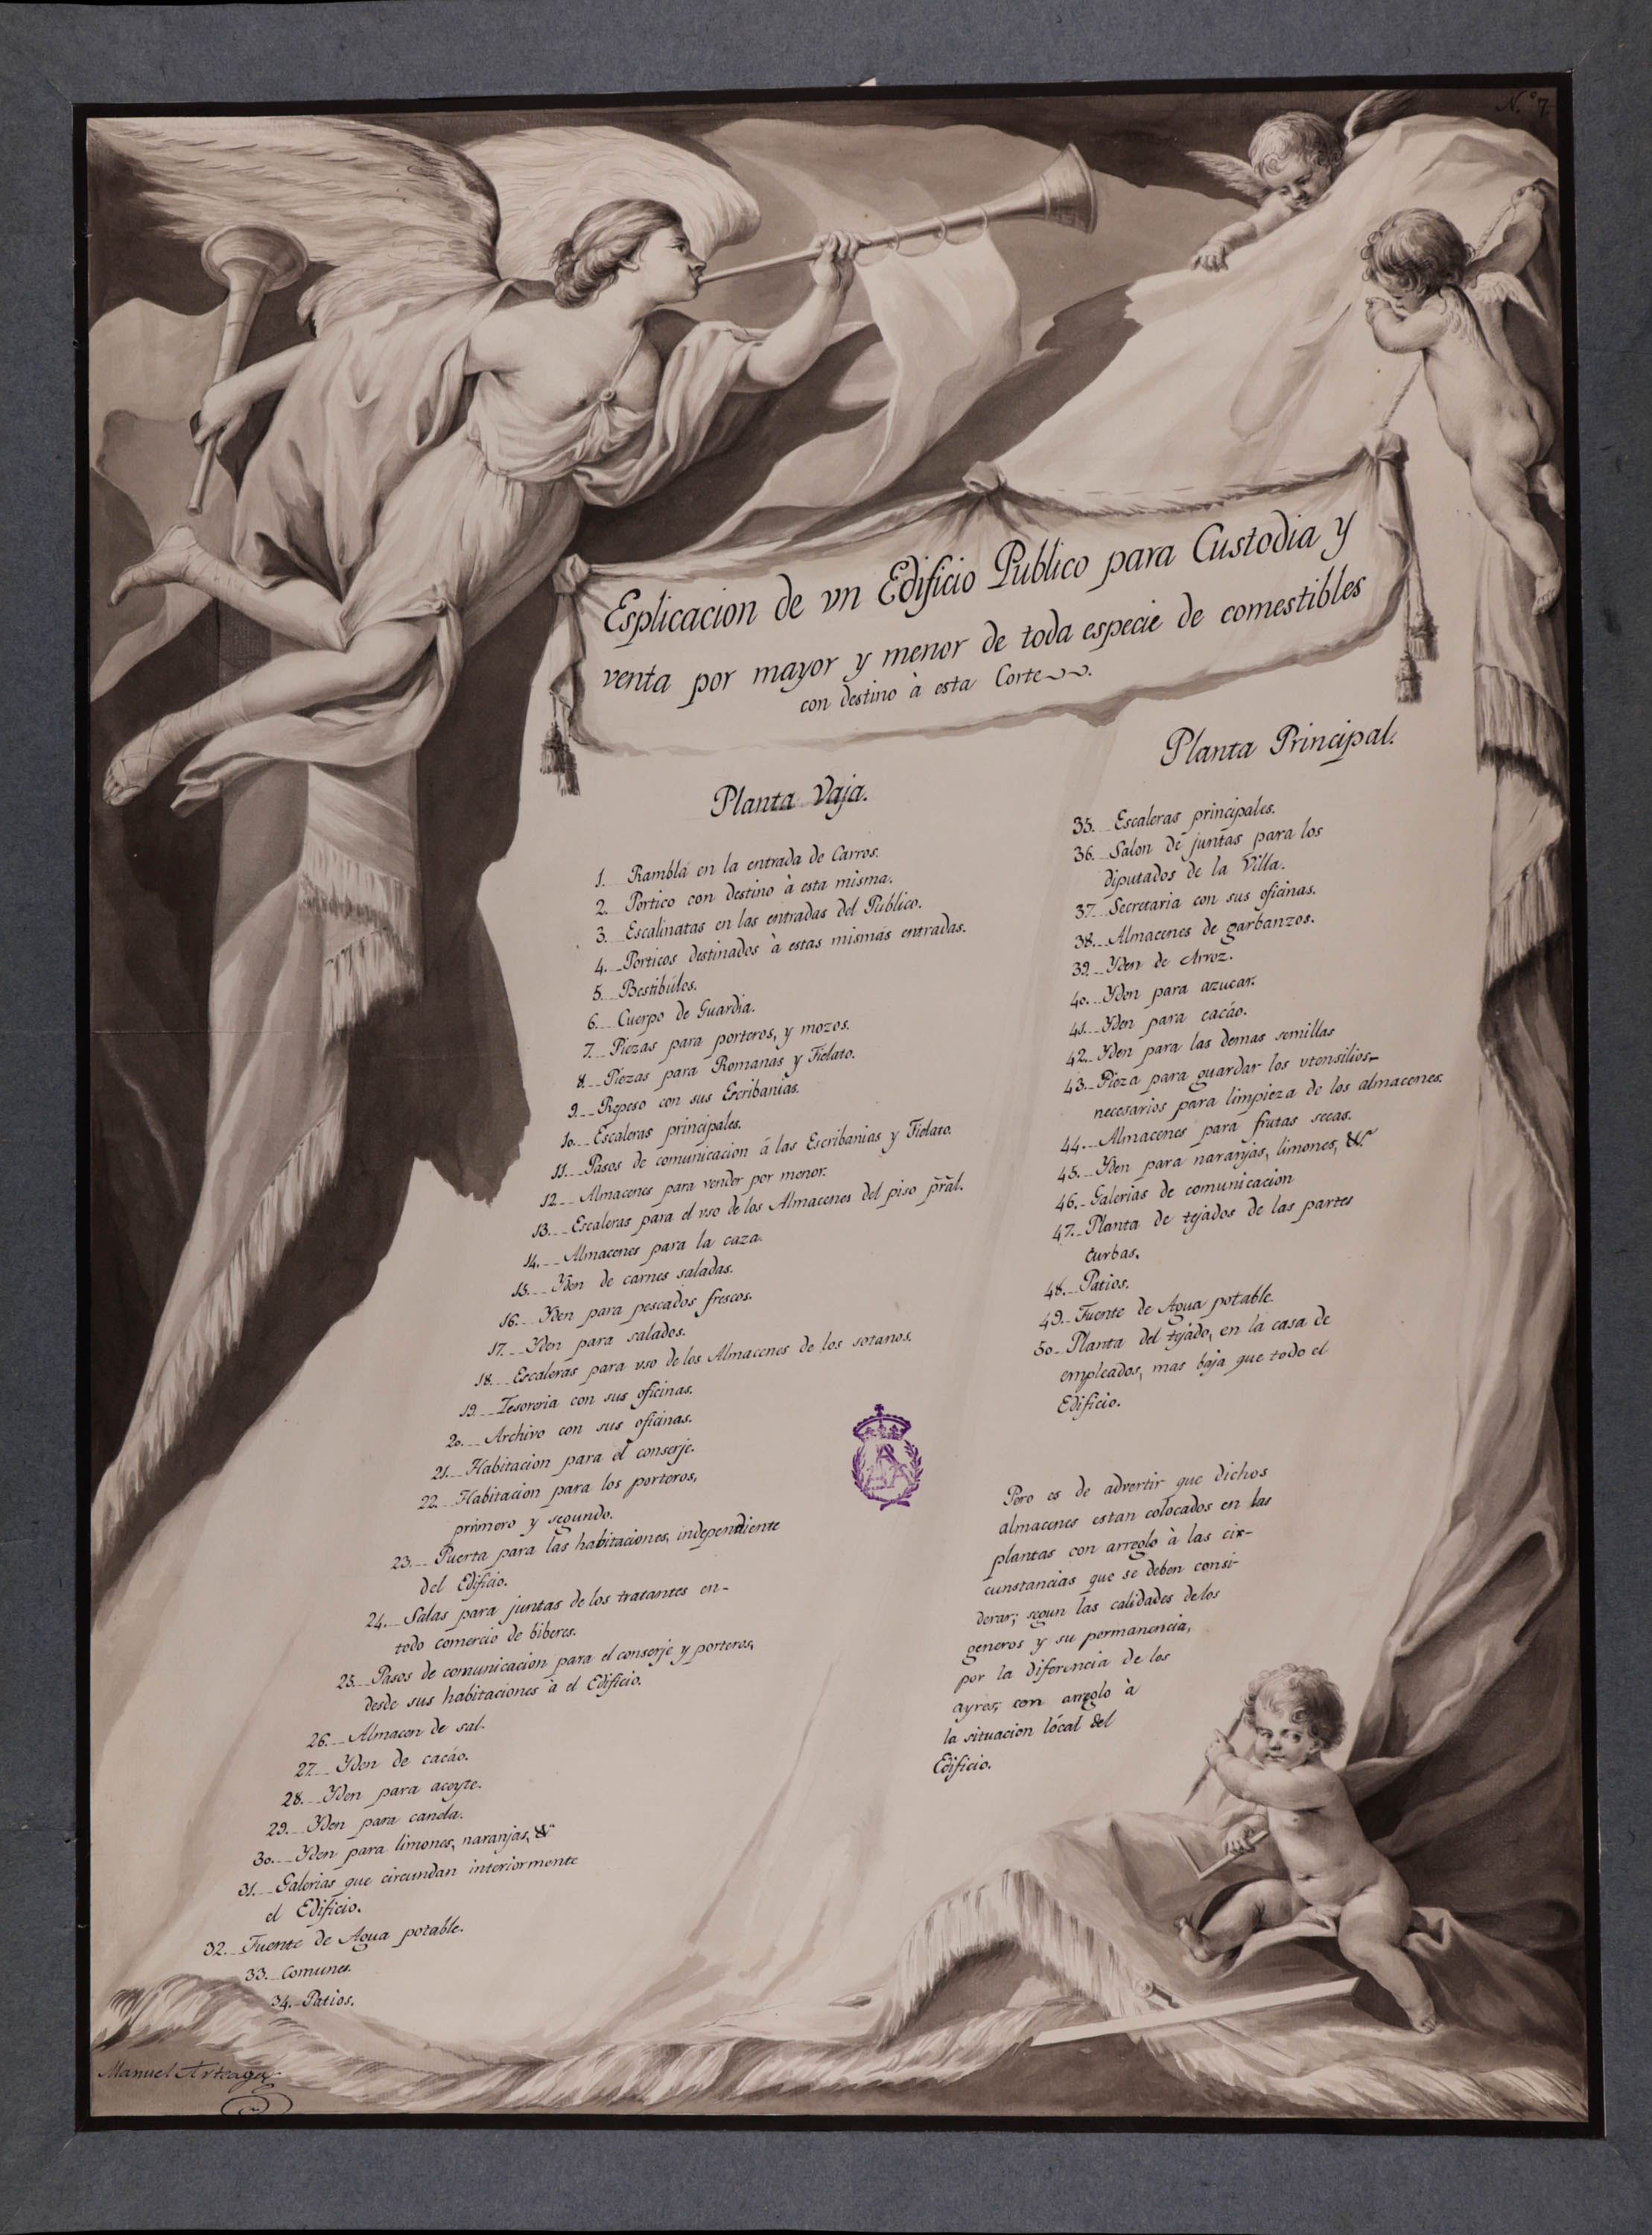 N.º 7.
Esplicacion de vn Edificio Publico para Custodia y
venta por mayor y menor de toda especie de comestibles
con destino à esta Corte
Planta Vaja.
1. Rambla en la entrada de Carros.
2. Portico con destino à esta misma.
3. Escalinatas en las entradas del Publico.
4. Porticos destinados à estas mismas entradas.
5. Bestibúlos.
6. Cuerpo de Guardia.
7. Piezas para porteros, y mozos.
8. Piezas para Romanas y Fielato.
9. Repeso con sus Escribanias.
10. Escaleras principales.
11. Pasos de comunicacion á las Escribanias y Fielato.
12. Almacenes para vender por menor.
13. Escaleras para el vso de los Almacenes del piso pr̃al.
14. Almacenes para la caza.
15. Yden de carnes saladas.
16. Yden para pescados frescos.
17. Yden para salados.
18. Escaleras para vso de los Almacenes de los sotanos.
19. Tesoreria con sus oficinas.
20. Archivo con sus oficinas.
21. Habitacion para el conserje.
22. Habitacion para los porteros,
primero y segundo.
23. Puerta para las habitaciones, independiente
del Edificio.
24. Salas para juntas de los tratantes en-
todo comercio de biberes.
25. Pasos de comunicacion para el conserje y porteros,
desde sus habitaciones à el Edificio.
26. Almacen de sal.
27. Yden de cacáo.
28. Yden para aceyte.
29. Yden para canela.
30. Yden para limones, naranjas, &ª
31. Galerias que circundan interiormente
el Edificio.
32. Fuente de Agua potable.
33. Comunes.
34. Patios.
Planta Principal.
35. Escaleras principales.
36. Salon de juntas para los
diputados de la Villa.
37. Secretaria con sus oficinas.
38. Almacenes de garbanzos.
39. Yden de Arroz.
40. Yden para azucar.
41. Yden para cacáo.
42. Yden para las demas semillas
43. Pieza para guardar los vtensilios-
necesarios para limpieza de los almacenes.
44. Almacenes para frutas secas.
45. Yden para naranjas, limones, &ª
46. Galerias de comunicacion
47. Planta de tejados de las partes
curbas.
48. Patios.
49. Fuente de Agua potable.
50. Planta del tejádo, en la casa de
empleados, mas baja que todo el
Edificio.
Pero es de advertir que dichos
almacenes estan colocados en las
plantas con arreglo à las cir-
cunstancias que se deben consi-
derar; segun las calidades de los
generos y su permanencia,
por la diferencia de los
ayres; con arreglo à
la situacion lócal del
Edificio.
Manuel Arteaga